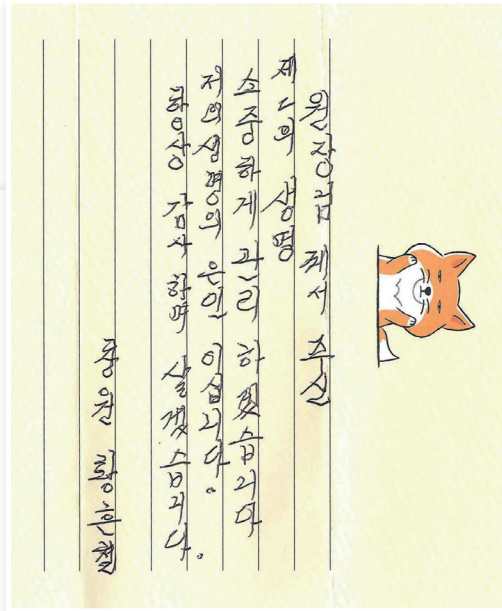 원장님 께서 주신
제2의 생명
소중하게 관리 하겠습니다
저의생명의 은인 이십니다.
항상 감사 하며 살겠습니다.
창원